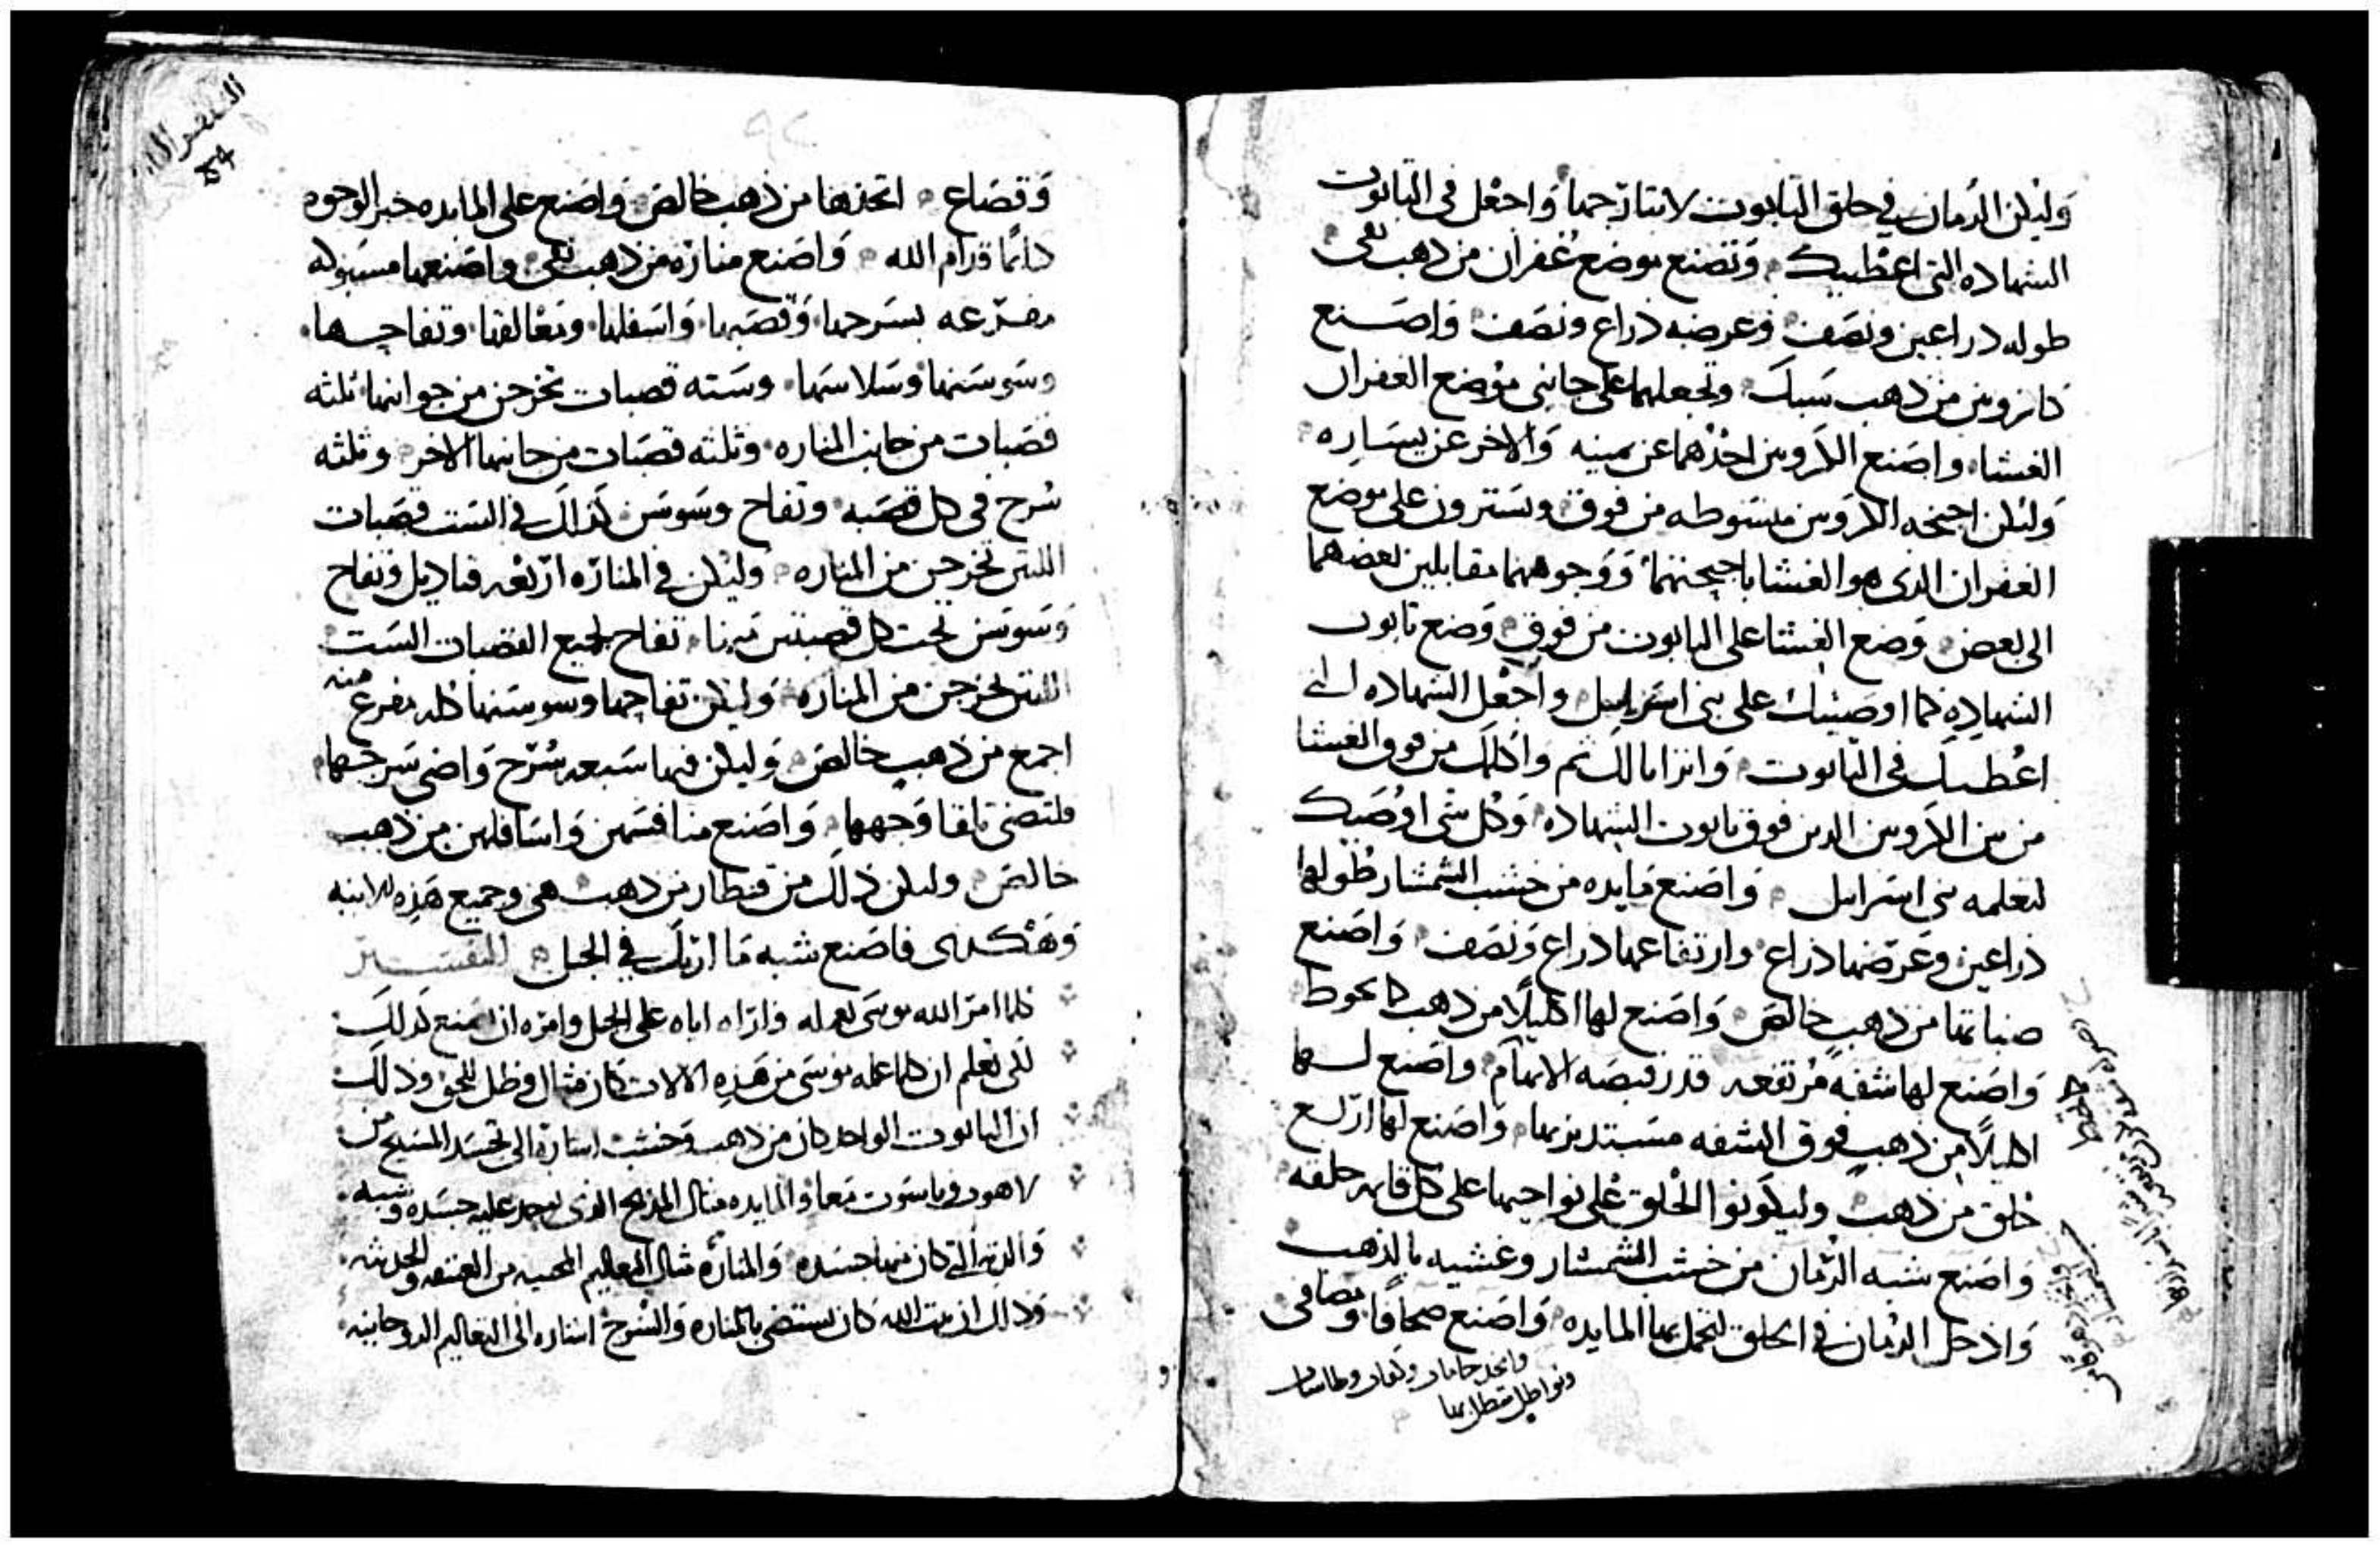 وليكن الدهان في حلق التابوت لا تنازحها واجعل في التابوت
الشهاده التي اعطيك وتصنع موضع غفران من ذهب نقى
طوله ذراعين ونصف وعرضه ذراع ونصف واصنع
كاروبين من ذهب سبك وتجعلهما على جانبي موضع الغفران
الغشا واصنع الكاروبين احدهما عن يمينه والاخر عن يساره
ولتكن اجنحه الكاروبين مبسوطه من فوق ويسترون على موضع
الغفران الذى هو الغشا باجنحتهما ووجوههما مقابلين بعضهما
الى بعض وضع الغشا على التابوت من فوق وضع تابوت
الشهاده كما اوصيتك على بنى اسراييل واجعل الشهاده التى
اعطيك في التابوت وانزامالك ثم واكلمك من فوق الغشا
من بين الكاروبين الدين فوق تابوت الشهاده وكل شى اوصيك
لتعلمه بنى اسراييل واصنع مايده من خشب الشمشار طولها
ذراعين وعرضها ذراع وارتفاعها ذراع ونصف واصنع
من ذهب خالص واصنع لها اكليلا من ذهب كما يحوط
واصنع لها شفه مرتفعه قدر قبضه الابهام واصنع لها
اكليلا من ذهب فوق الشفه مستديرها واصنع لها اربع
حلق من ذهب وليكونوا الحلق على نواحيها على كل قايمه حلقه
واصنع شبه الرمان من خشب الشمشار وغشيه بالذهب
وادخل الدهان في الحلق لتحمل بها المايده واصنع صحافا ومصافى
وقصاع اتخذها من ذهب خالص واصنع على المايده خبز الوجوه
دايما قدام الله واصنع مناره من ذهب نقى واصنعها مسبوكه
مفرغه بسرجها وقصبها واسفلها ومعالقها وتفاحها
وسوسنها وسلاسها وسته قصبات تخرجن من جوانبها ثلثه
قصبات من جانب المناره وثلثه قصبات من جانبها الاخر وثلثه
سرج في كل قصبه وتفاح وسوسن كذلك في الست قصبات
اللتين تخرجن من المناره وليكن في المناره اربعه قناديل وتفاح
وسوسن تحت كل قصبتين منها تفاح لجميع القصبات الست
اللتين تخرجن من المناره وليكن تفاحها وسوسنها كله مفرغ منه
اجمع من ذهب خالص وليكن فيها سبعه سرج واضى سرجها
فلتضى تلقا وجهها واصنع مناقسهن واسافلهن من ذهب
خالص وليكن ذلك من قنطار من ذهب هى وجميع هذه الانيه
وهكذى فاصنع شبه ما اريتك في الجبل التفسير
فلما امر الله موسى بعمله واراه اياه على الجبل وامره ان يصنع كذلك
لكى نعلم ان كلما عمله موسى من هذه الالات كان مثال وظل للحق وذلك
ان التابوت الواحد كان من ذهب وخشب اشاره الى تجسد المسيح من
لاهوت وناسوت معا والمايده مثال المذبح الذى يوجد عليه جسده وشبه
والدته التي كان منها جسده والمناره مثال التعاليم المحييه من العتيقه والحديثه
وذلك ان بيت الله كان يستضى بالمناره والسرج اشاره الى التعاليم الروحانيه